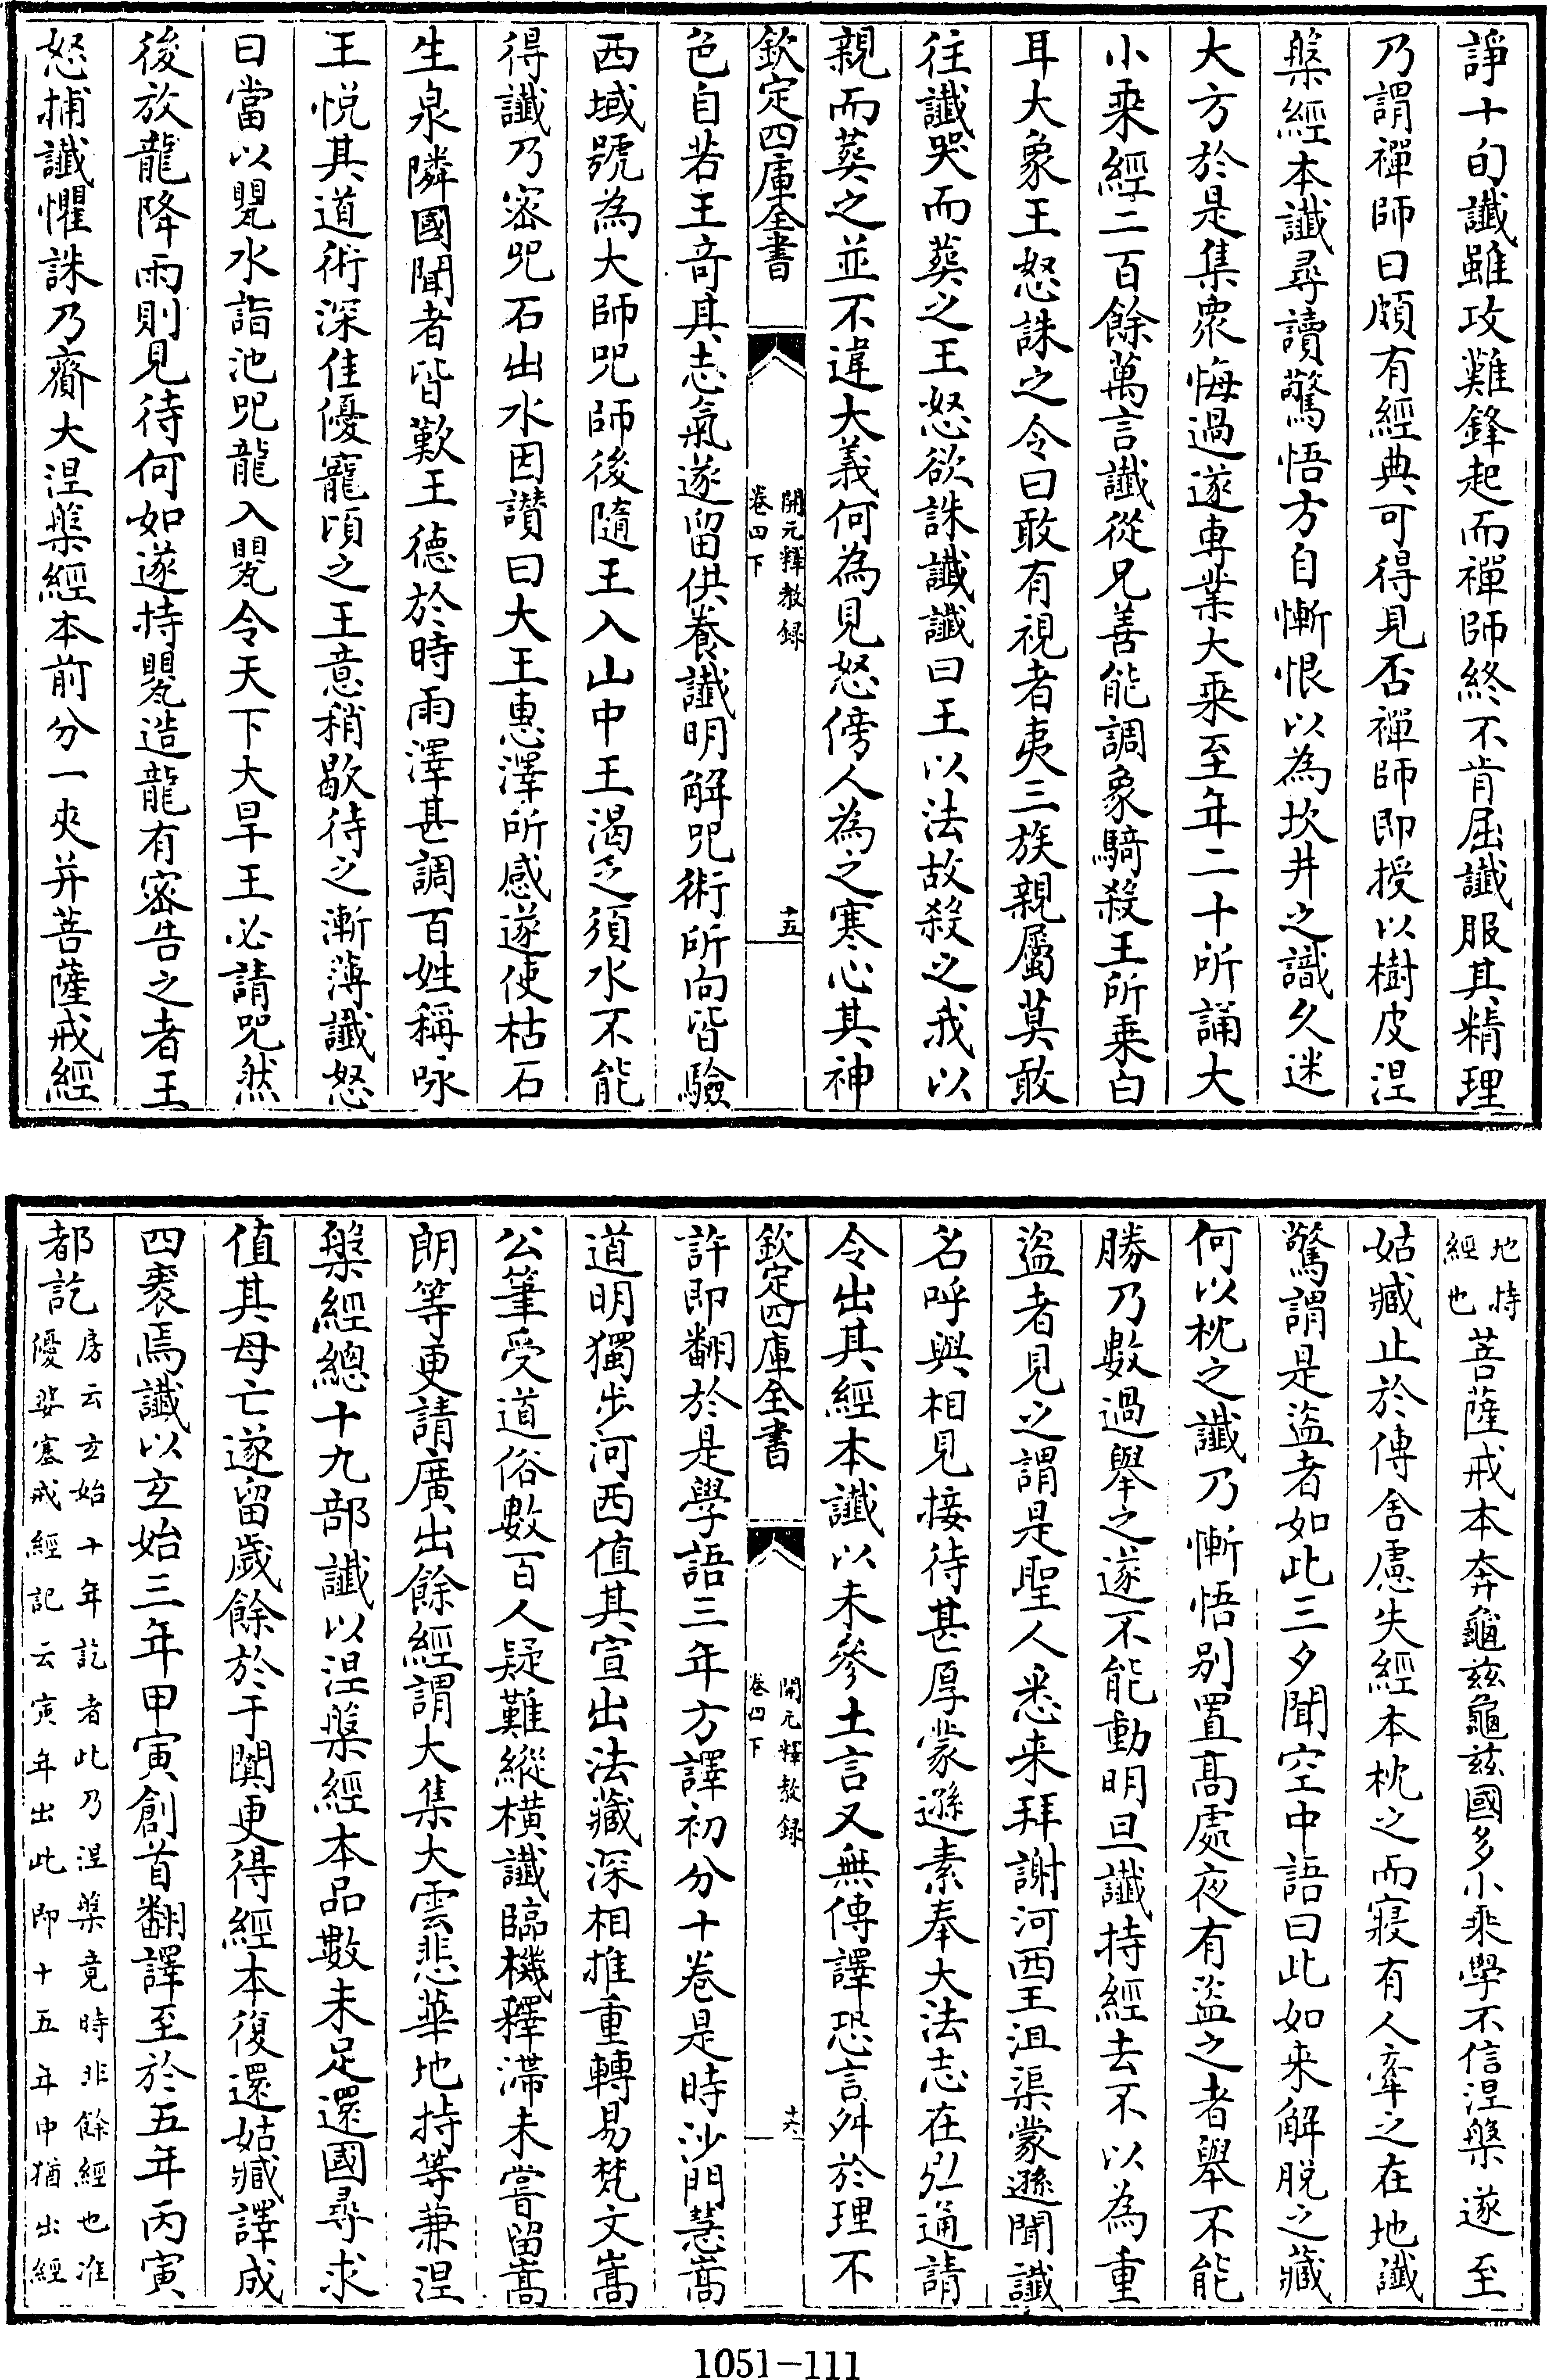 諍十旬讖雖攻難鋒起而禪師終不肯屈讖服其精理
乃謂禪師曰頗有經典可得見否禪師即授以樹皮涅
槃經本讖尋讀驚悟方自慚恨以為坎井之識久迷
大方於是集衆悔過遂專業大乘至年二十所誦大
小乘經二百餘萬言讖從兄善能調象騎殺王所乗白
耳大象王怒誅之令曰敢有視者夷三族親屬莫敢
往讖哭而葬之王怒欲誅讖讖曰王以法故殺之我以
親而葬之並不違大義何為見怒傍人為之寒心其神
欽定四庫全書
開元釋教録
卷四下
十五
色自若王竒其志氣遂留供養讖明解咒術所向皆驗
西域號為大師咒師後隨王入山中王渴乏須水不能
得讖乃密咒石出水因讃曰大王惠澤所感遂使枯石
生泉隣國聞者皆歎王德於時雨澤甚調百姓稱咏
王悦其道術深佳優寵頃之王意稍歇待之漸薄讖怒
曰當以甖水詣池咒龍入甖令天下大旱王必請咒然
後放龍降雨則見待何如遂持甖造龍有密告之者王
怒捕讖懼誅乃齎大涅槃經本前分一夾并菩薩戒經
地持
經也
菩薩戒本奔龜兹龜兹國多小乘學不信涅槃遂至
姑臧止於傳舍慮失經本枕之而寢有人牽之在地讖
驚謂是盜者如此三夕聞空中語曰此如来解脱之藏
何以枕之讖乃慚悟别置髙處夜有盜之者舉不能
勝乃數過舉之遂不能動明旦讖持經去不以為重
盜者見之謂是聖人悉来拜謝河西王沮渠蒙遜聞讖
名呼與相見接待甚厚蒙遜素奉大法志在弘通請
令出其經本讖以未參土言又無傳譯恐言舛於理不
欽定四庫全書
開元釋教録
卷四下
十六
許即翻於是學語三年方譯初分十卷是時沙門慧嵩
道明獨步河西值其宣出法藏深相推重轉易梵文嵩
公筆受道俗數百人疑難縱横讖臨機釋滯未嘗留嵩
朗等更請廣出餘經謂大集大雲悲華地持等兼涅
槃經總十九部讖以涅槃經本品數未足還國尋求
值其母亡遂留歲餘於于闐更得經本復還姑臧譯成
四袠焉讖以玄始三年甲寅創首翻譯至於五年丙寅
都訖
房云玄始十年訖者此乃涅槃竟時非餘經也准
優婆塞戒經記云寅年出此即十五年中猶出經
1051-111